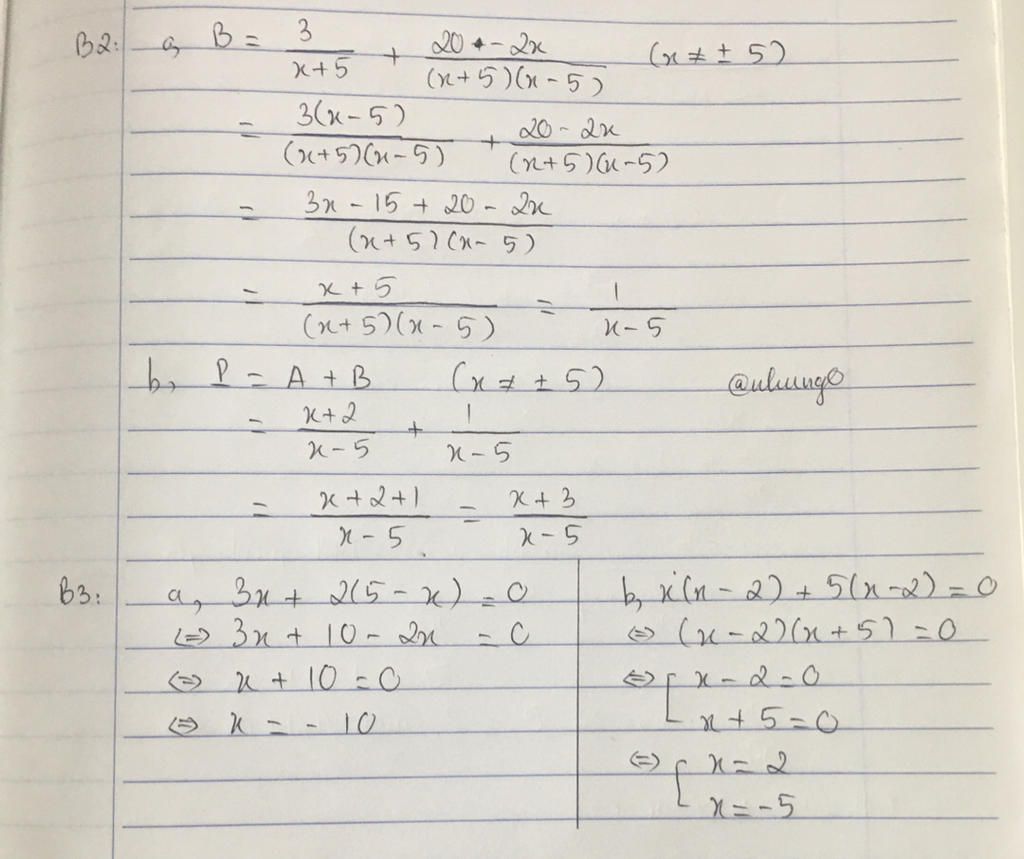 B2: a, B = 3/(x+5) + (20 - 2x)/((x+5)(x-5)) (x ≠ ± 5)
= 3(x-5)/((x+5)(x-5)) + (20 - 2x)/((x+5)(x-5))
= (3x - 15 + 20 - 2x)/((x+5)(x-5))
= (x+5)/((x+5)(x-5)) = 1/(x-5)
b, P = A + B (x ≠ ± 5)
= (x+2)/(x-5) + 1/(x-5)
= (x+2+1)/(x-5) = (x+3)/(x-5)
B3: a, 3x + 2(5 - x) = 0
⇔ 3x + 10 - 2x = 0
⇔ x + 10 = 0
⇔ x = - 10
b, x(x - 2) + 5(x - 2) = 0
⇔ (x - 2)(x + 5) = 0
⇔ [ x - 2 = 0
x + 5 = 0
⇔ [ x = 2
x = -5